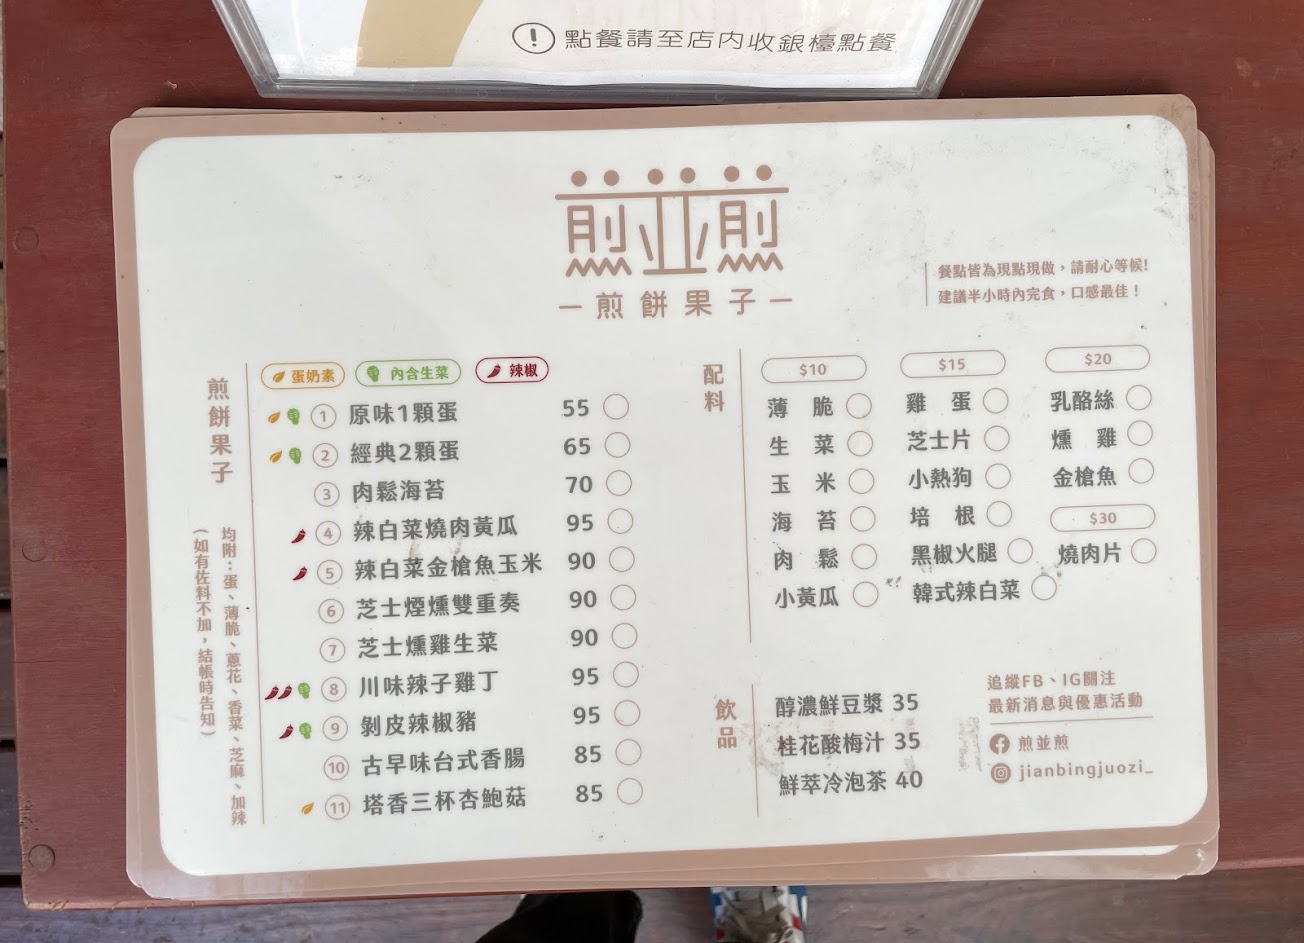 點餐請至店內收銀檯點餐
煎並煎
煎餅果子
餐點皆為現點現做，請耐心等候!
建議半小時內完食，口感最佳！
煎餅果子
均附：蛋、薄脆、蔥花、香菜、芝麻、加辣
(如有佐料不加，結帳時告知)
蛋奶素 內含生菜 辣椒
1 原味1顆蛋 55
2 經典2顆蛋 65
3 肉鬆海苔 70
4 辣白菜燒肉黃瓜 95
5 辣白菜金槍魚玉米 90
6 芝士煙燻雙重奏 90
7 芝士燻雞生菜 90
8 川味辣子雞丁 95
9 剝皮辣椒豬 95
10 古早味台式香腸 85
11 塔香三杯杏鮑菇 85
配料
$10
薄脆
生菜
玉米
海苔
肉鬆
小黃瓜
$15
雞蛋
芝士片
小熱狗
培根
黑椒火腿
韓式辣白菜
$20
乳酪絲
燻雞
金槍魚
$30
燒肉片
飲品
醇濃鮮豆漿 35
桂花酸梅汁 35
鮮萃冷泡茶 40
追縱FB、IG關注
最新消息與優惠活動
煎並煎
jianbingjuozi_